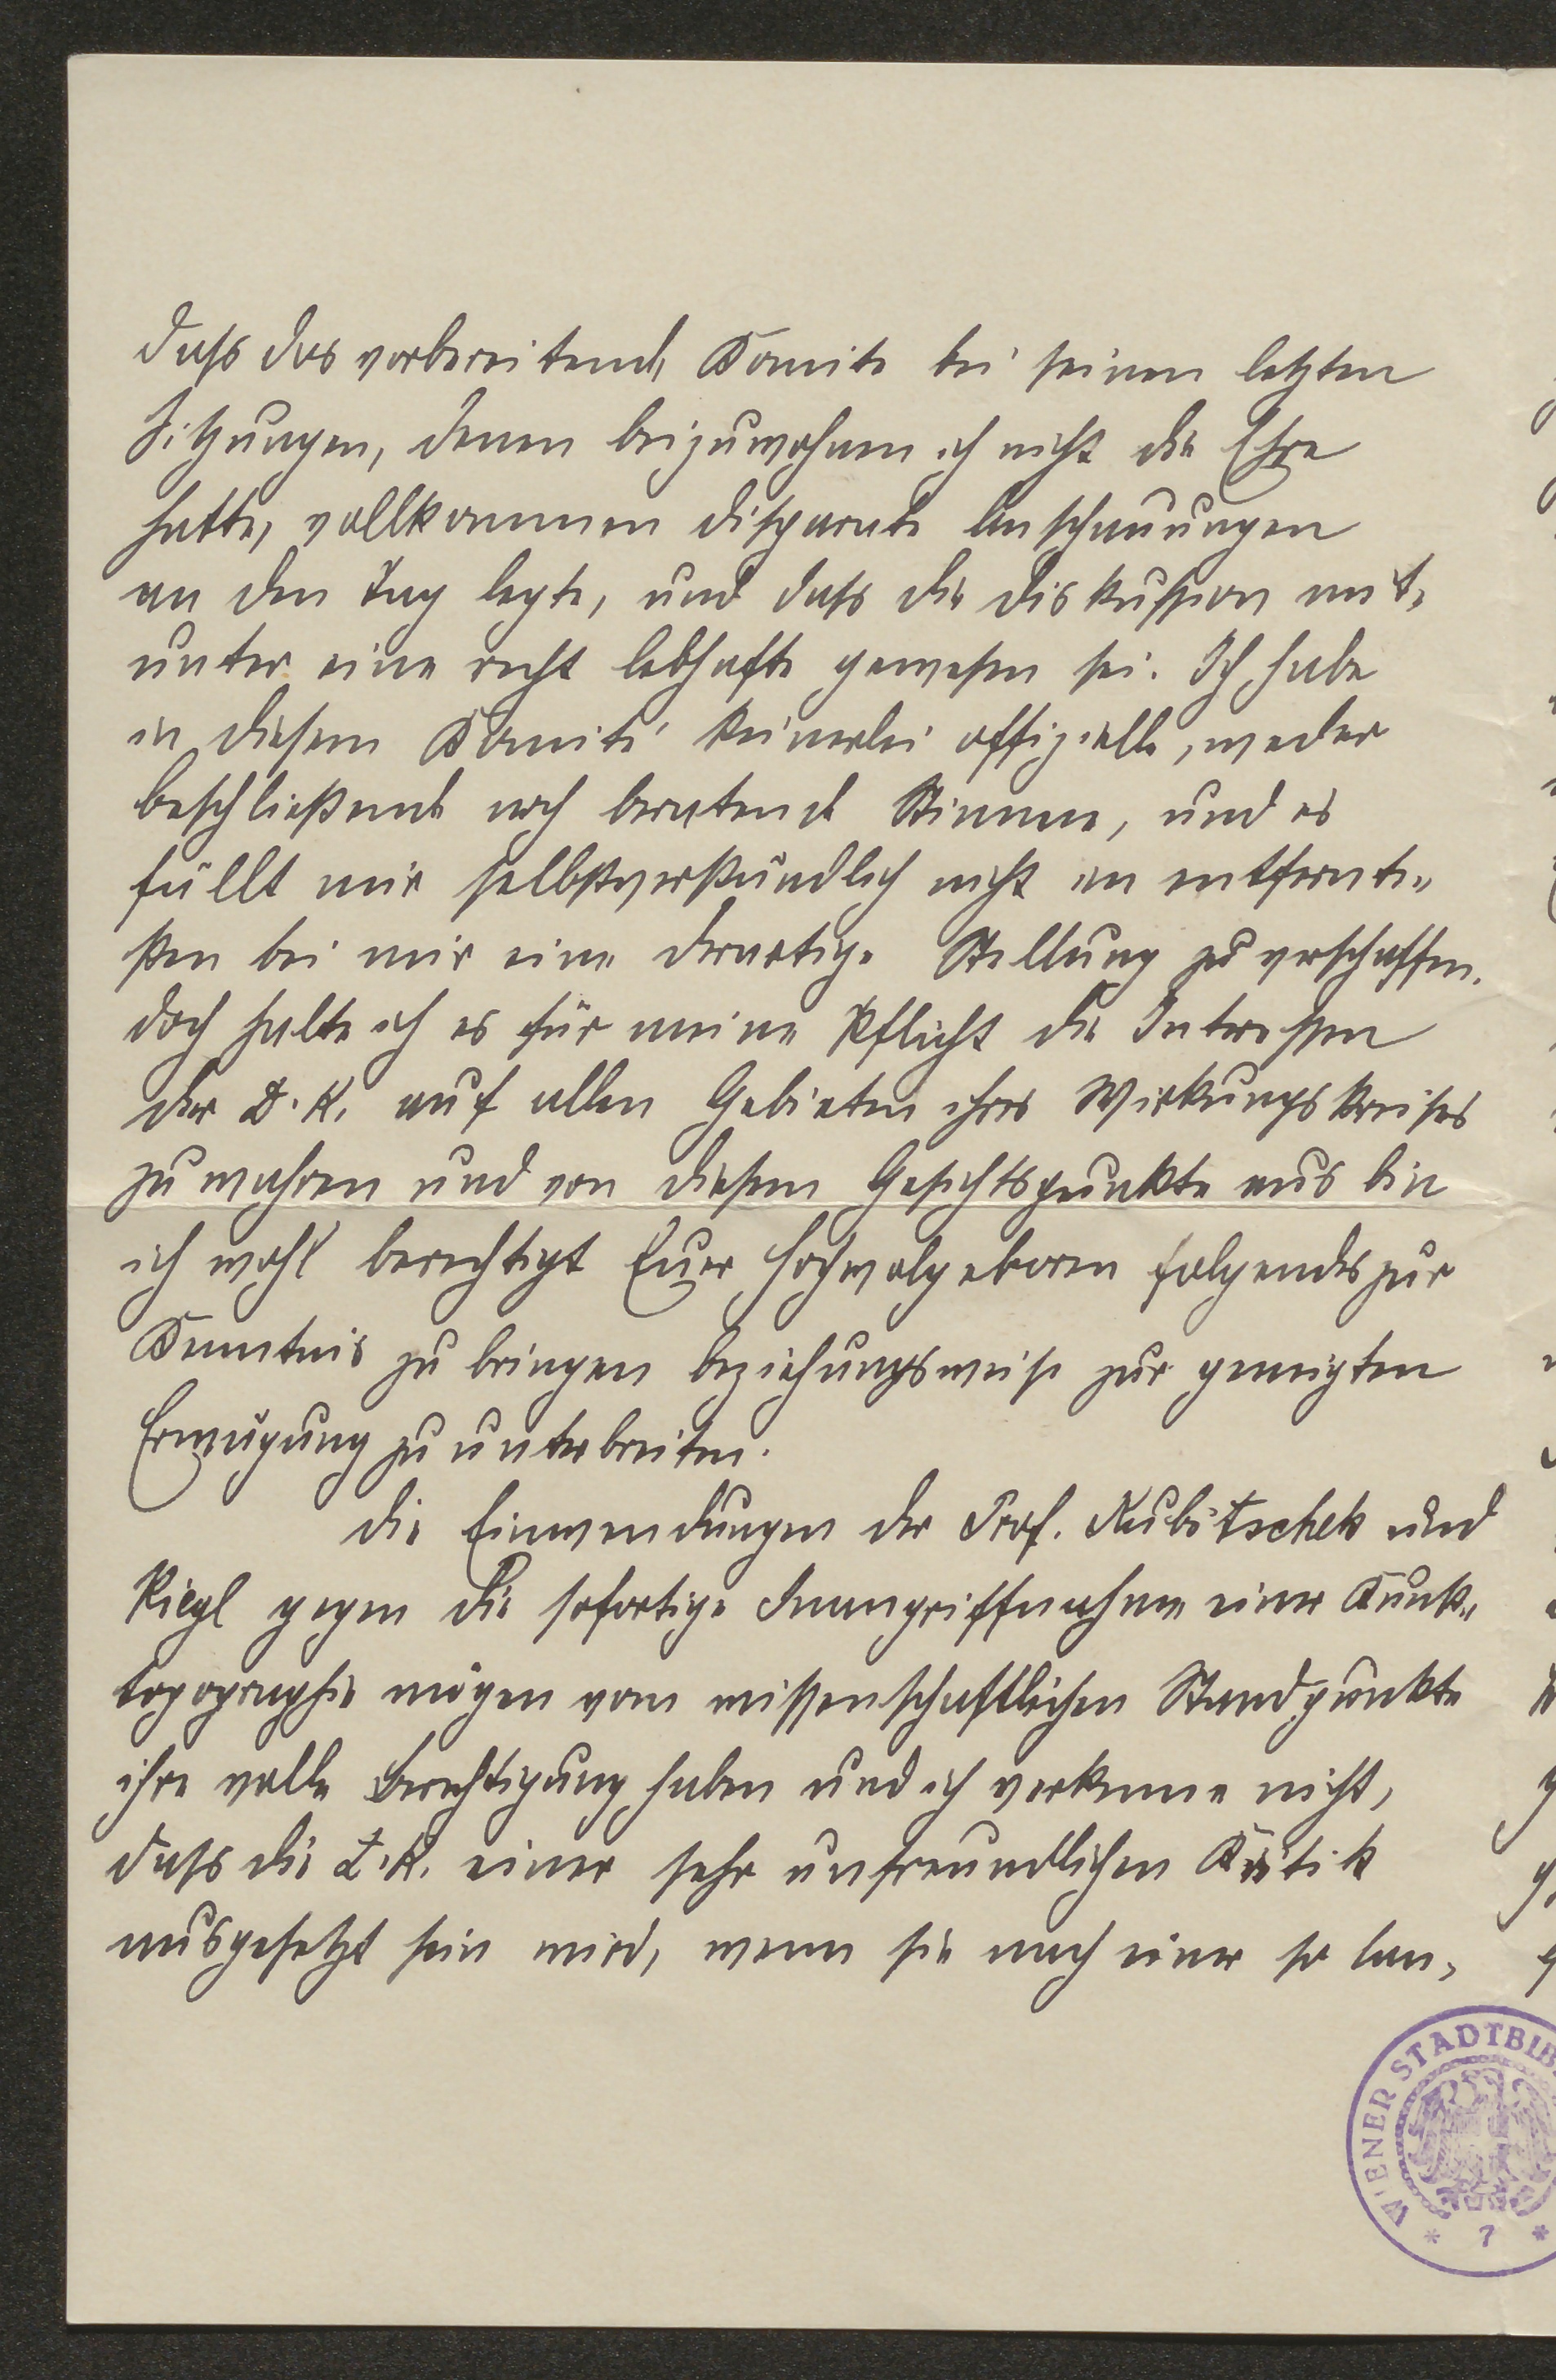 dass das vorbereitende Komite bei seinen letzten
Sitzungen, denen beizuwohnen ich nicht die Ehre
hatte, vollkommen disparate Anschauungen
an den Tag legte, und dass die Diskussion mit-
unter eine recht lebhafte gewesen sei. Ich habe
in diesem Komité keinerlei offizielle, weder
beschließende noch beratende Stimme, und es
fällt mir selbstverständlich nicht im entfernte-
sten bei mir eine derartige Stellung zu verschaffen.
doch halte ich es für meine Pflicht die Interessen
der Z. K. auf allen Gebieten ihres Wirkungskreises
zu wahren und von diesem Gesichtspunkte aus bin
ich wohl berechtigt Euer Hochwolgeboren folgendes zur
Kenntnis zu bringen beziehungsweise zur geneigten
Erwägung zu unterbreiten.
Die Einwendungen der Prof. Kubitschek und
Riegl gegen die sofortige Inangriffnahme einer Kunst-
topographie mögen vom wissenschaftlichen Standpunkte
ihre volle Berechtigung haben und ich verkenne nicht,
dass die Z. K. einer sehr unfreundlichen Kritik
ausgesetzt sein wird, wenn sie nach einer so lan-
WIENER STADTBIB
* 7 *